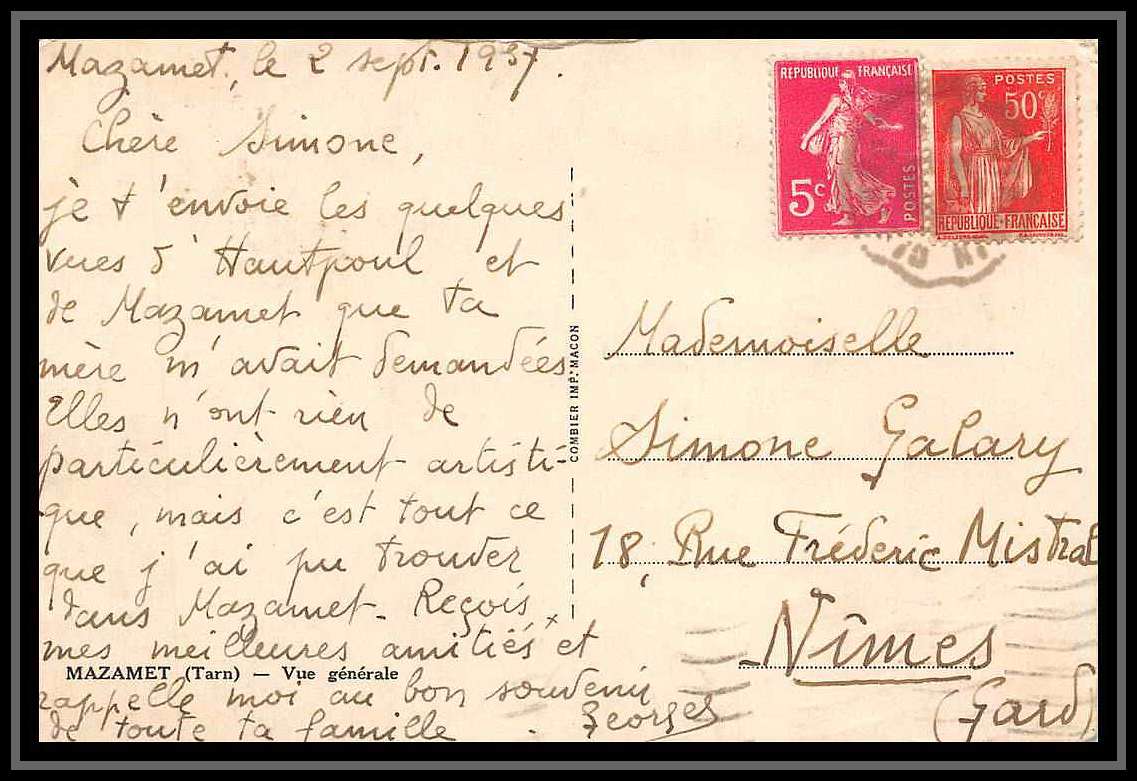 Mazamet, le 2 sept. 1937.
Chère Simone,
je t'envoie les quelques
vues d'Hautpoul et
de Mazamet que ta
mère m'avait demandées
Elles n'ont rien de
particulièrement artisti-
que, mais c'est tout ce
que j'ai pu trouver
dans Mazamet. Reçois
mes meilleures amitiés et
MAZAMET (Tarn) — Vue générale
rappelle moi au bon souvenir
de toute ta famille.
Georges
COMBIER IMP. MACON
REPUBLIQUE FRANÇAISE
5c
POSTES
POSTES
50c
REPUBLIQUE FRANÇAISE
Mademoiselle
Simone Galary
18, Rue Fréderic Mistral
Nîmes
(Gard)